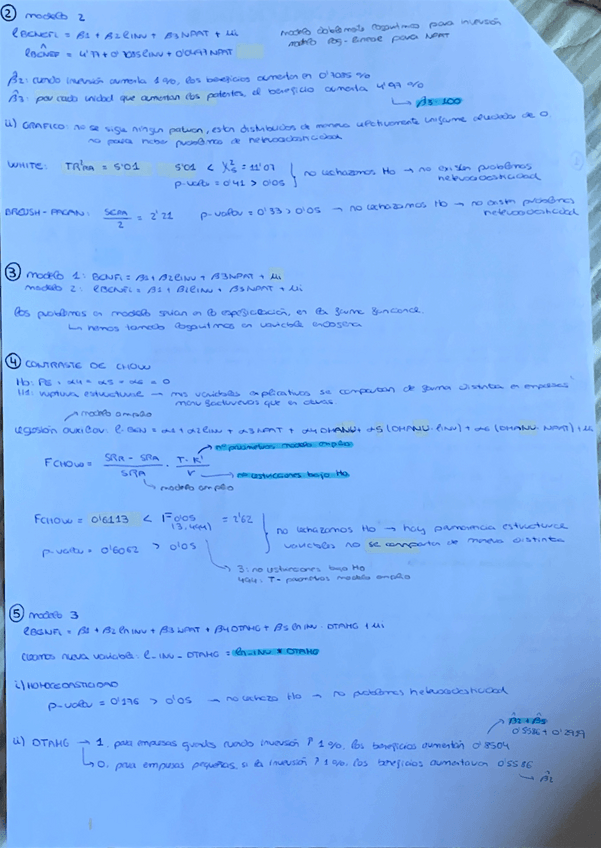 ② modelo 2
lBENEFi = β1 + β2 lINV + β3 NPAT + ui
modelo doblemente logaritmico para inversión
modelo log-lineal para NPAT
lBENEF = 4'77 + 0'7085 lINV + 0'0497 NPAT
β̂2: cuando inversión aumenta 1%, los beneficios aumentan en 0'7085 %
β̂3: por cada unidad que aumentan las patentes, el beneficio aumenta 4'97 %
↳ β̂3·100
ii) GRAFICO: no se sigue ningun patron, estan distribuidos de manera uniforme alrededor de 0
no parece haber problema de heteroscedasticidad
WHITE: TR²RA = 5'01 5'01 < χ²5 = 11'07
p-valor = 0'41 > 0'05
no rechazamos Ho → no existen problemas heteroscedasticidad
BREUSH-PAGAN: SCEA/2 = 2'21 p-valor = 0'33 > 0'05 → no rechazamos Ho → no existen problemas heteroscedasticidad
③ modelo 1: BENFi = β1 + β2 lINV + β3 NPAT + ui
modelo 2: lBENEFi = β1 + β2 lINV + β3 NPAT + ui
los problemas en modelo serian en la especificación, en la forma funcional.
↳ hemos tomado logaritmos en variable endogena
④ CONTRASTE DE CHOW
Ho: PE: α4 = α5 = α6 = 0
H1: ruptura estructural → mis variables explicativas se comportan de forma distinta en empresas manufactureras que en otras.
modelo amplio
regresión auxiliar: l-BEN = α1 + α2 lINV + α3 NPAT + α4 DMANU + α5 (DMANU·lINV) + α6 (DMANU·NPAT) + ui
FCHOW = SRA - SRA / SRA · T-K' / r
nº parametros modelo amplio
nº restricciones bajo Ho
modelo amplio
FCHOW = 0'6113 < F0'05 (3,494) = 2'62
p-valor = 0'6062 > 0'05
no rechazamos Ho → hay permanencia estructural
variables no se comportan de manera distinta
3: nº restricciones bajo Ho
494: T - parametros modelo amplio
⑤ modelo 3
lBENEFi = β1 + β2 ln INV + β3 NPAT + β4 DTAMG + β5 ln INV · DTAMG + ui
creamos nueva variable: l_INV_DTAMG = ln_INV * DTAMG
i) HOMOCEDASTICIDAD
p-valor = 0'176 > 0'05 → no rechazo Ho → no problemas heteroscedasticidad
β̂2 + β̂5
0'5586 + 0'2919
ii) DTAMG → 1. para empresas grandes cuando inversión ↑ 1%, los beneficios aumentan 0'8504
↳ 0. para empresas pequeñas, si la inversión ↑ 1%, los beneficios aumentaran 0'5586
↳ β̂2